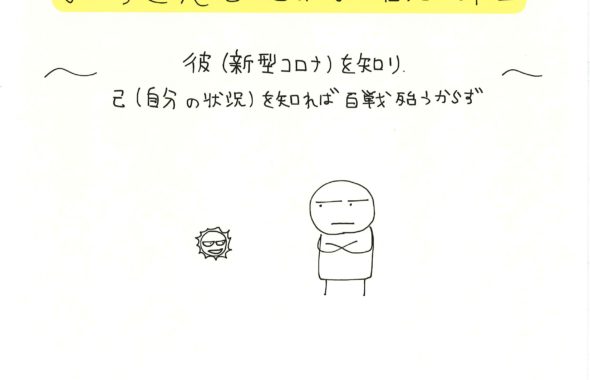 〜 彼(新型コロナ)を知り. 〜
己(自分の状況)を知れば百戦殆うからず